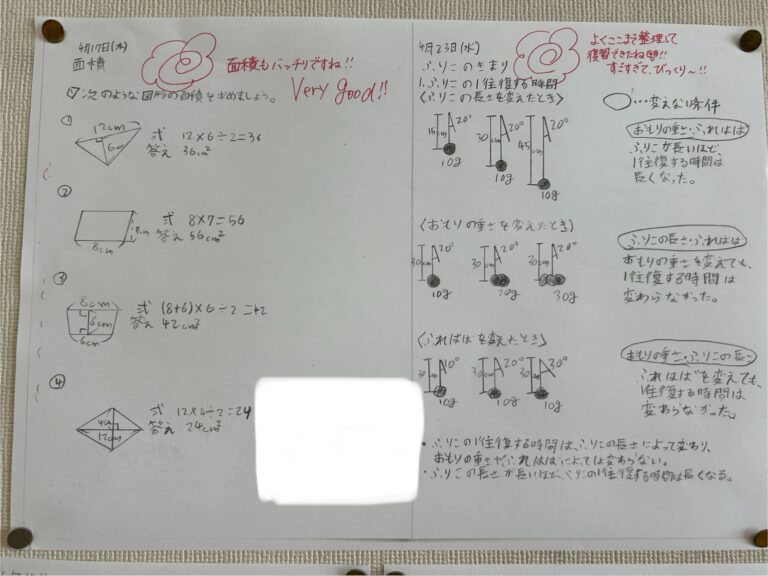 4月17日(木)
面積
面積もバッチリですね!!
Very good!!
次のような図形の面積を求めましょう。
①
12cm
6cm
式 12×6÷2=36
答え 36cm²
②
8cm
7cm
式 8×7=56
答え 56cm²
③
8cm
6cm
6cm
式 (8+6)×6÷2=42
答え 42cm²
④
4cm
12cm
式 12×4÷2=24
答え 24cm²
4月23日(水)
よくここまで整理して
復習できたね
すごすぎて、びっくり〜!!
ふりこのきまり
1.ふりこの1往復する時間
〈ふりこの長さを変えたとき〉
○…変えない条件
15cm 20° 10g
30cm 20° 10g
45cm 20° 10g
おもりの重さ・ふれはば
ふりこが長いほど、
1往復する時間は
長くなった。
〈おもりの重さを変えたとき〉
30cm 20° 10g
30cm 20° 20g
30cm 20° 30g
ふりこの長さ・ふれはば
おもりの重さを変えても、
1往復する時間は
変わらなかった。
〈ふれはばを変えたとき〉
30cm 10° 10g
30cm 20° 10g
30cm 30° 10g
おもりの重さ・ふりこの長さ
ふれはばを変えても、
1往復する時間は
変わらなかった。
・ふりこの1往復する時間は、ふりこの長さによって変わり、
おもりの重さやふれはばによっては変わらない。
・ふりこの長さが長いほど、ふりこの1往復する時間は長くなる。